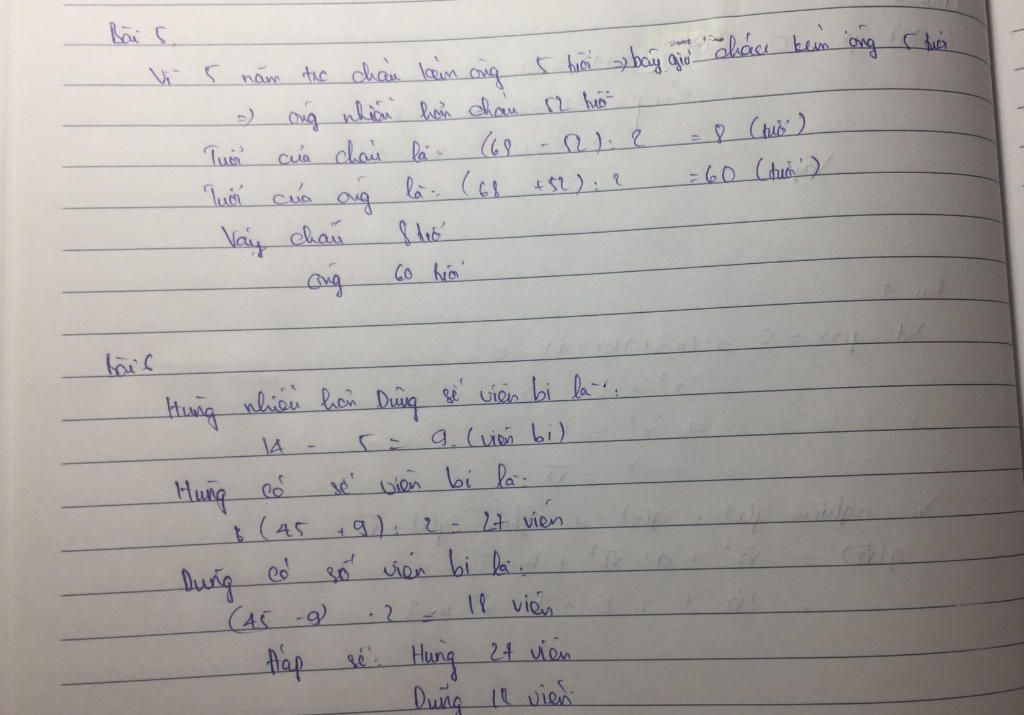 Bài 5.
Vì 5 năm trc cháu kém ông 5 tuổi => bây giờ cháu kém ông 5 tuổi
=) ông nhiều hơn cháu 52 tuổi
Tuổi của cháu là: (68 - 52) : 2 = 8 (tuổi)
Tuổi của ông là: (68 + 52) : 2 = 60 (tuổi)
Vậy cháu 8 tuổi
ông 60 tuổi
Bài 6
Hùng nhiều hơn Dũng số viên bi là:
14 - 5 = 9 (viên bi)
Hùng có số viên bi là:
(45 + 9) : 2 = 27 viên
Dũng có số viên bi là:
(45 - 9) : 2 = 18 viên
Đáp số: Hùng 27 viên
Dũng 18 viên